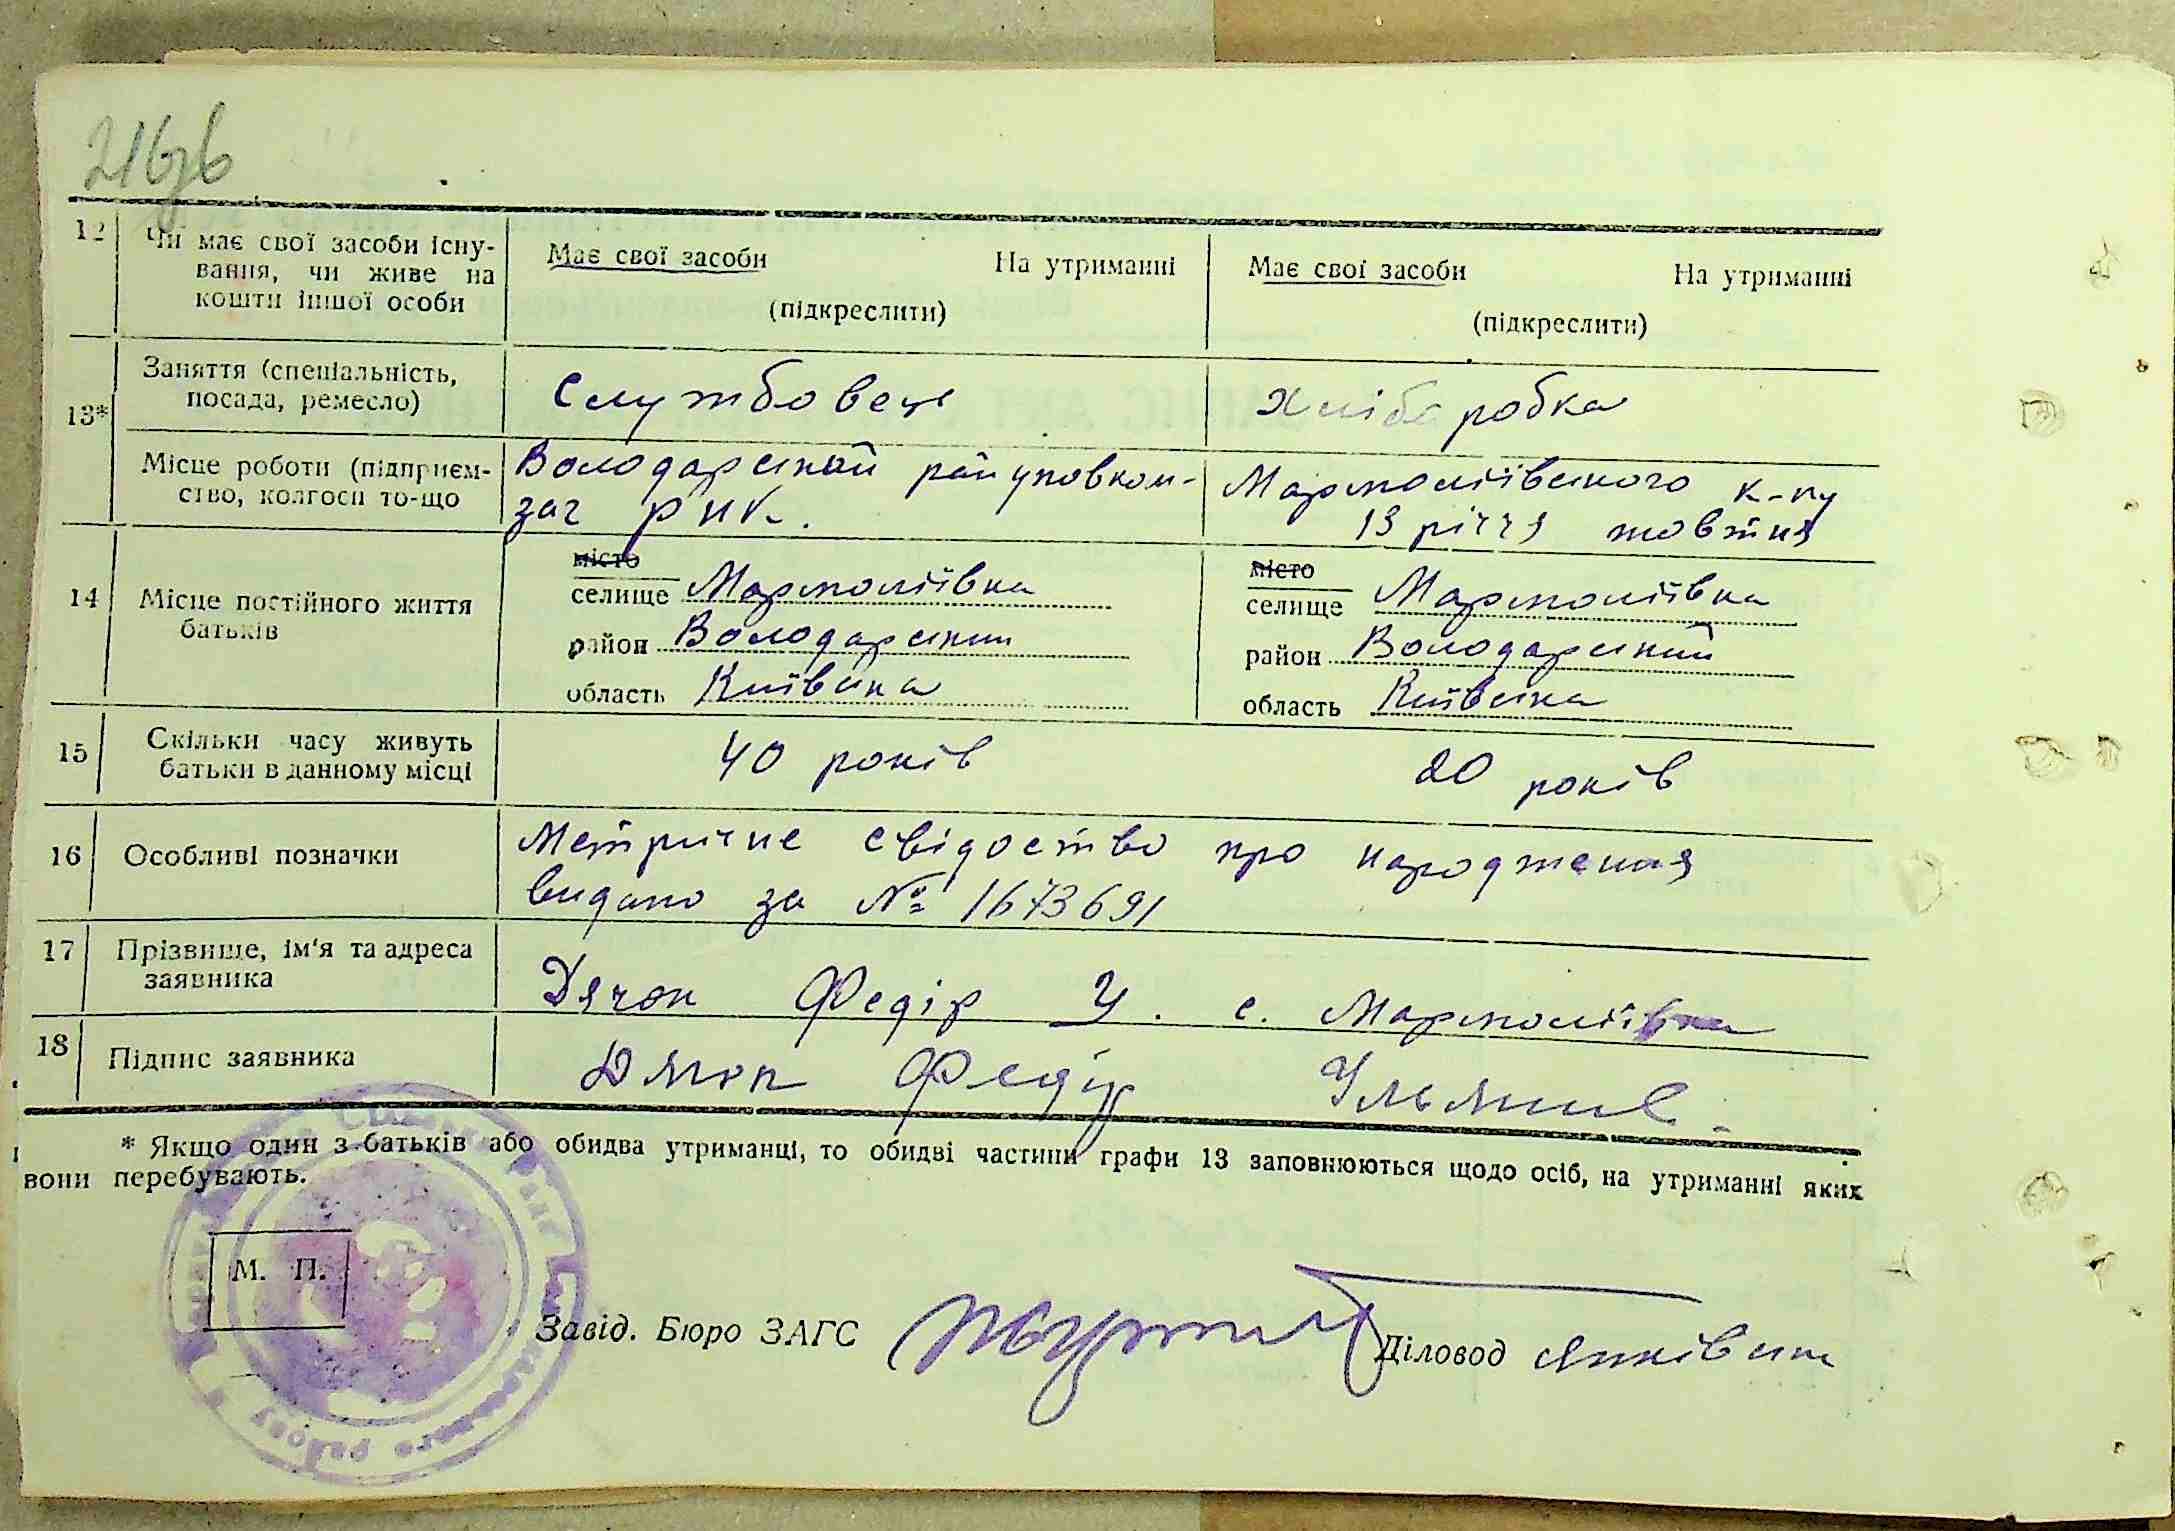 12 Чи має свої засоби існу-
вання, чи живе на
кошти іншої особи
Має свої засоби На утриманні
(підкреслити)
Має свої засоби На утриманні
(підкреслити)
13*
Заняття (спеціальність,
посада, ремесло)
Службовець
Хліборобка
Місце роботи (підприєм-
ство, колгосп то-що
Володарський райуповком-
заг РИК.
Мармоліївського к-пу
13 річчя жовтня
14 Місце постійного життя
батьків
місто
селище Мармоліївка
район Володарский
область Київська
місто
селище Мармоліївка
район Володарский
область Київська
15 Скільки часу живуть
батьки в данному місці
40 років
20 років
16 Особливі позначки
Метричне свідоство про народження
видано за № 1673691
17 Прізвище, ім'я та адреса
заявника
Дячок Федір У. с. Мармоліївка
18 Підпис заявника
Дячок Федір
* Якщо один з батьків або обидва утриманці, то обидві частини графи 13 заповнюються щодо осіб, на утриманні яких
вони перебувають.
М. П.
Завід. Бюро ЗАГС
Діловод